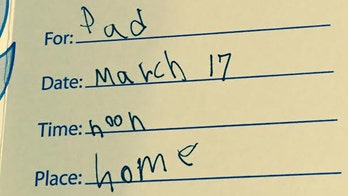 For: Pad
Date: March 17
Time: noon
Place: home